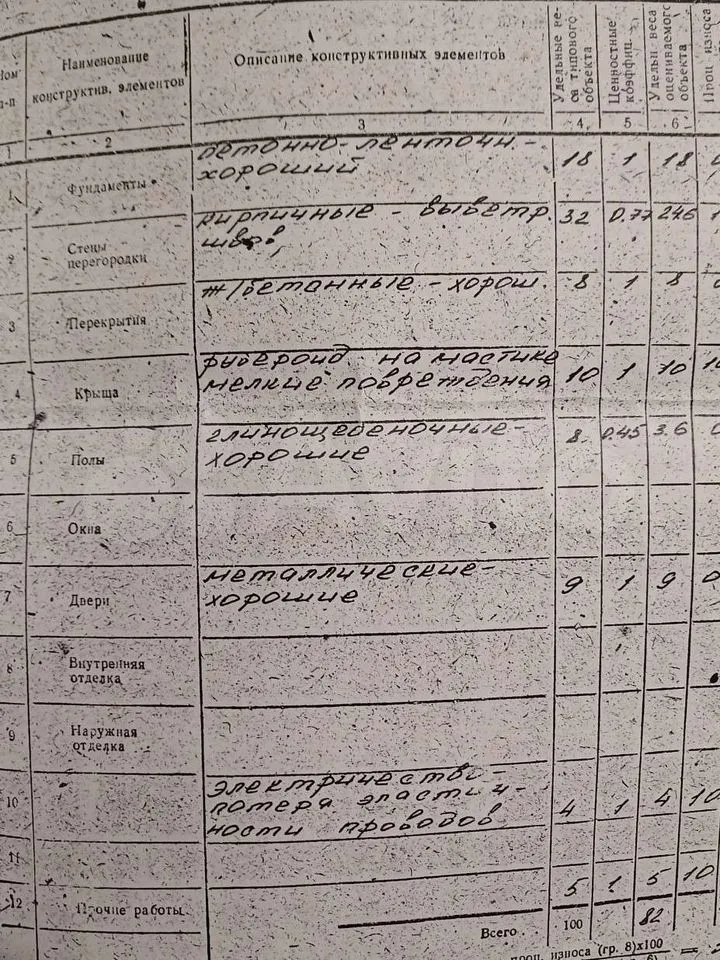 Ном
п-п
Наименование
конструктив. элементов
Описание конструктивных элементов
Удельные ве-
са типового
объекта
Ценностные
коэффиц.
Удельн веса
оцениваемого
объекта
Проц износа
1
2
3
4
5
6
1
Фундаменты
бетонно-ленточн.-
хороший
18
1
18
2
Стены
перегородки
кирпичные - выветр.
швов,
32
0.77
24.6
3
Перекрытия
ж/бетанные - хорош.
8
1
8
4
Крыша
рубероид на мастике
мелкие повреждения
10
1
10
10
5
Полы
глинощебеночные-
хорошие
8
0.45
3.6
6
Окна
7
Двери
металлические-
хорошие
9
1
9
0
8
Внутренняя
отделка
9
Наружная
отделка
10
электричестви-
потера эластич-
ности проводов
4
1
4
10
11
12
Прочие работы.
5
1
5
10
Всего
100
82
проц. износа (гр. 8)х100